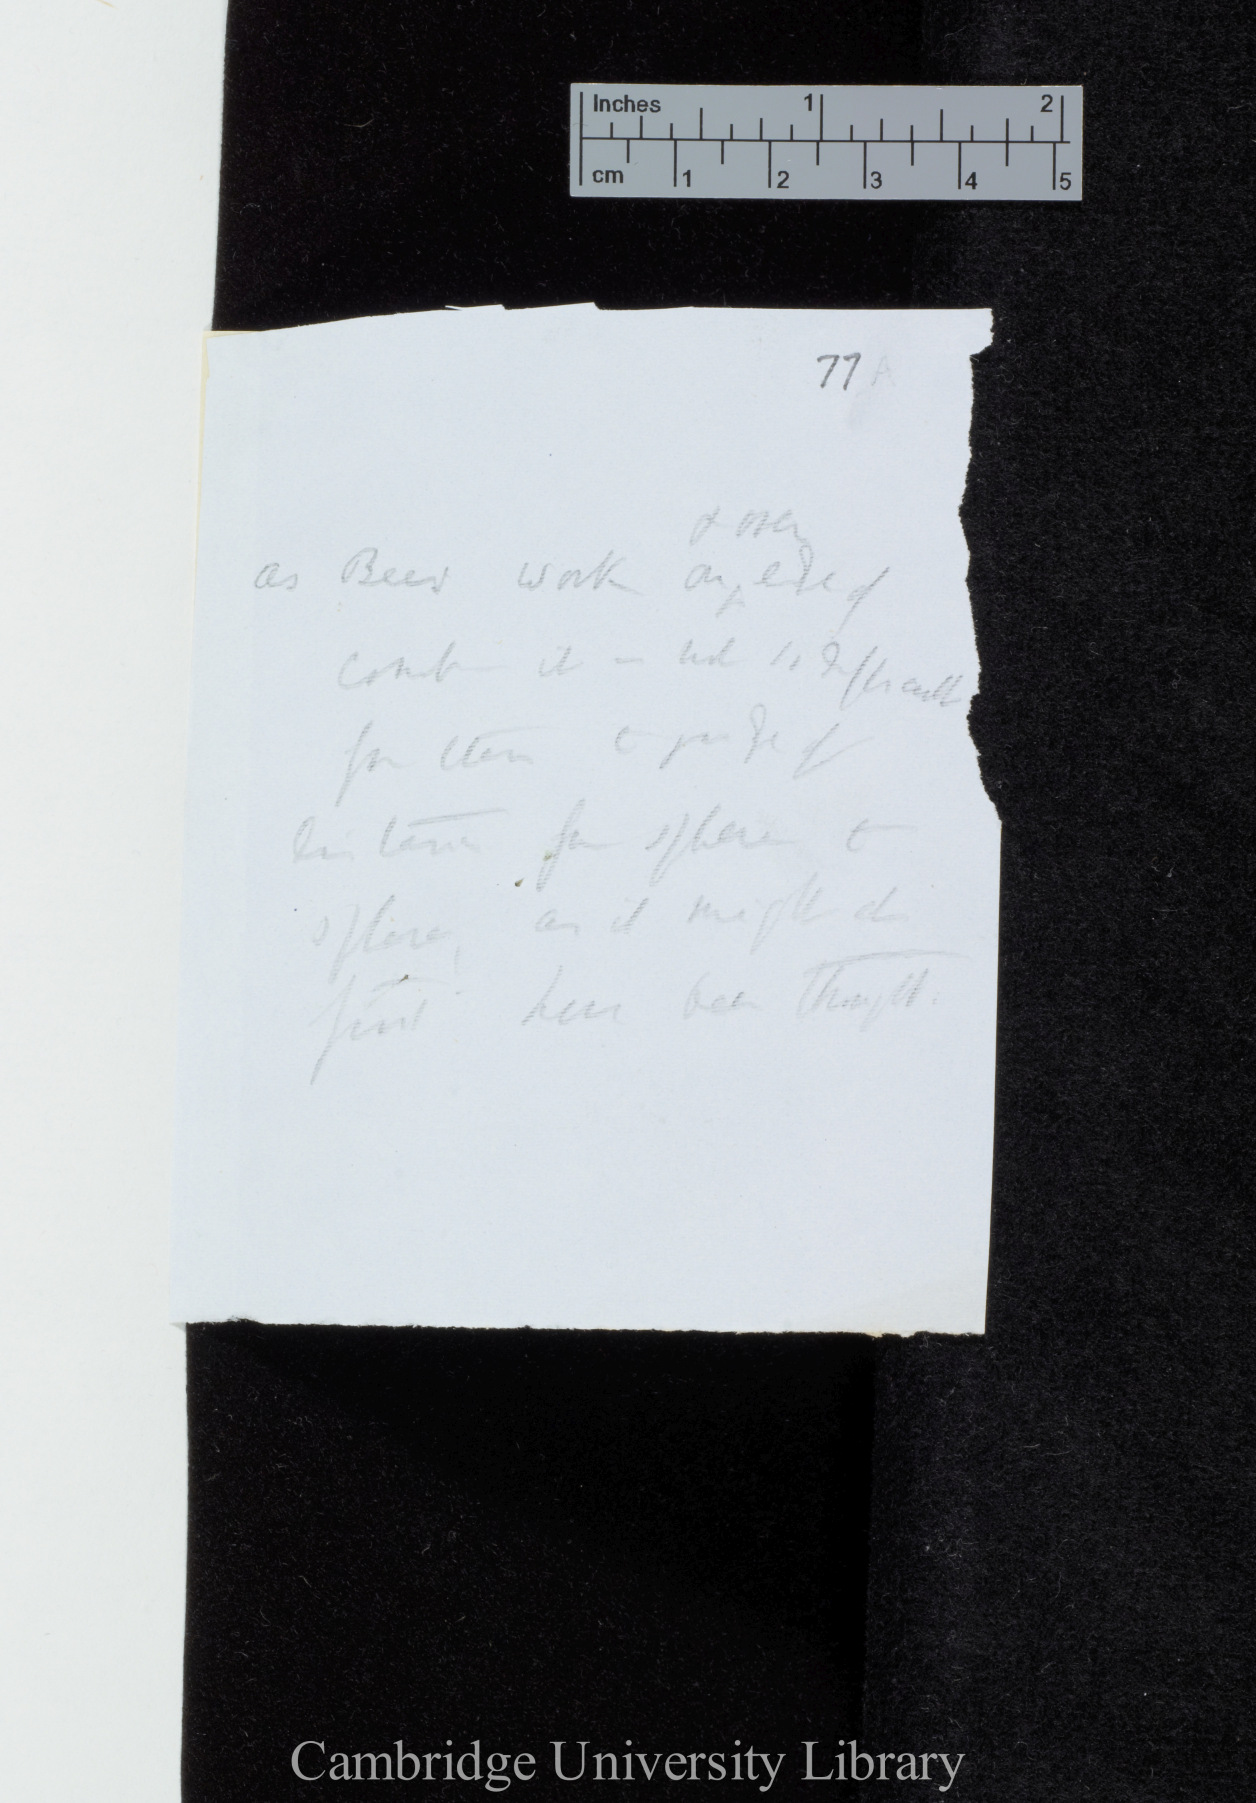 Inches 1 2
cm 1 2 3 4 5
77 A
& over
as Bees work any side of
comb it is not so difficult
for them to judge of
distance from sphere to
sphere, as it might at
first have been thought.
Cambridge University Library